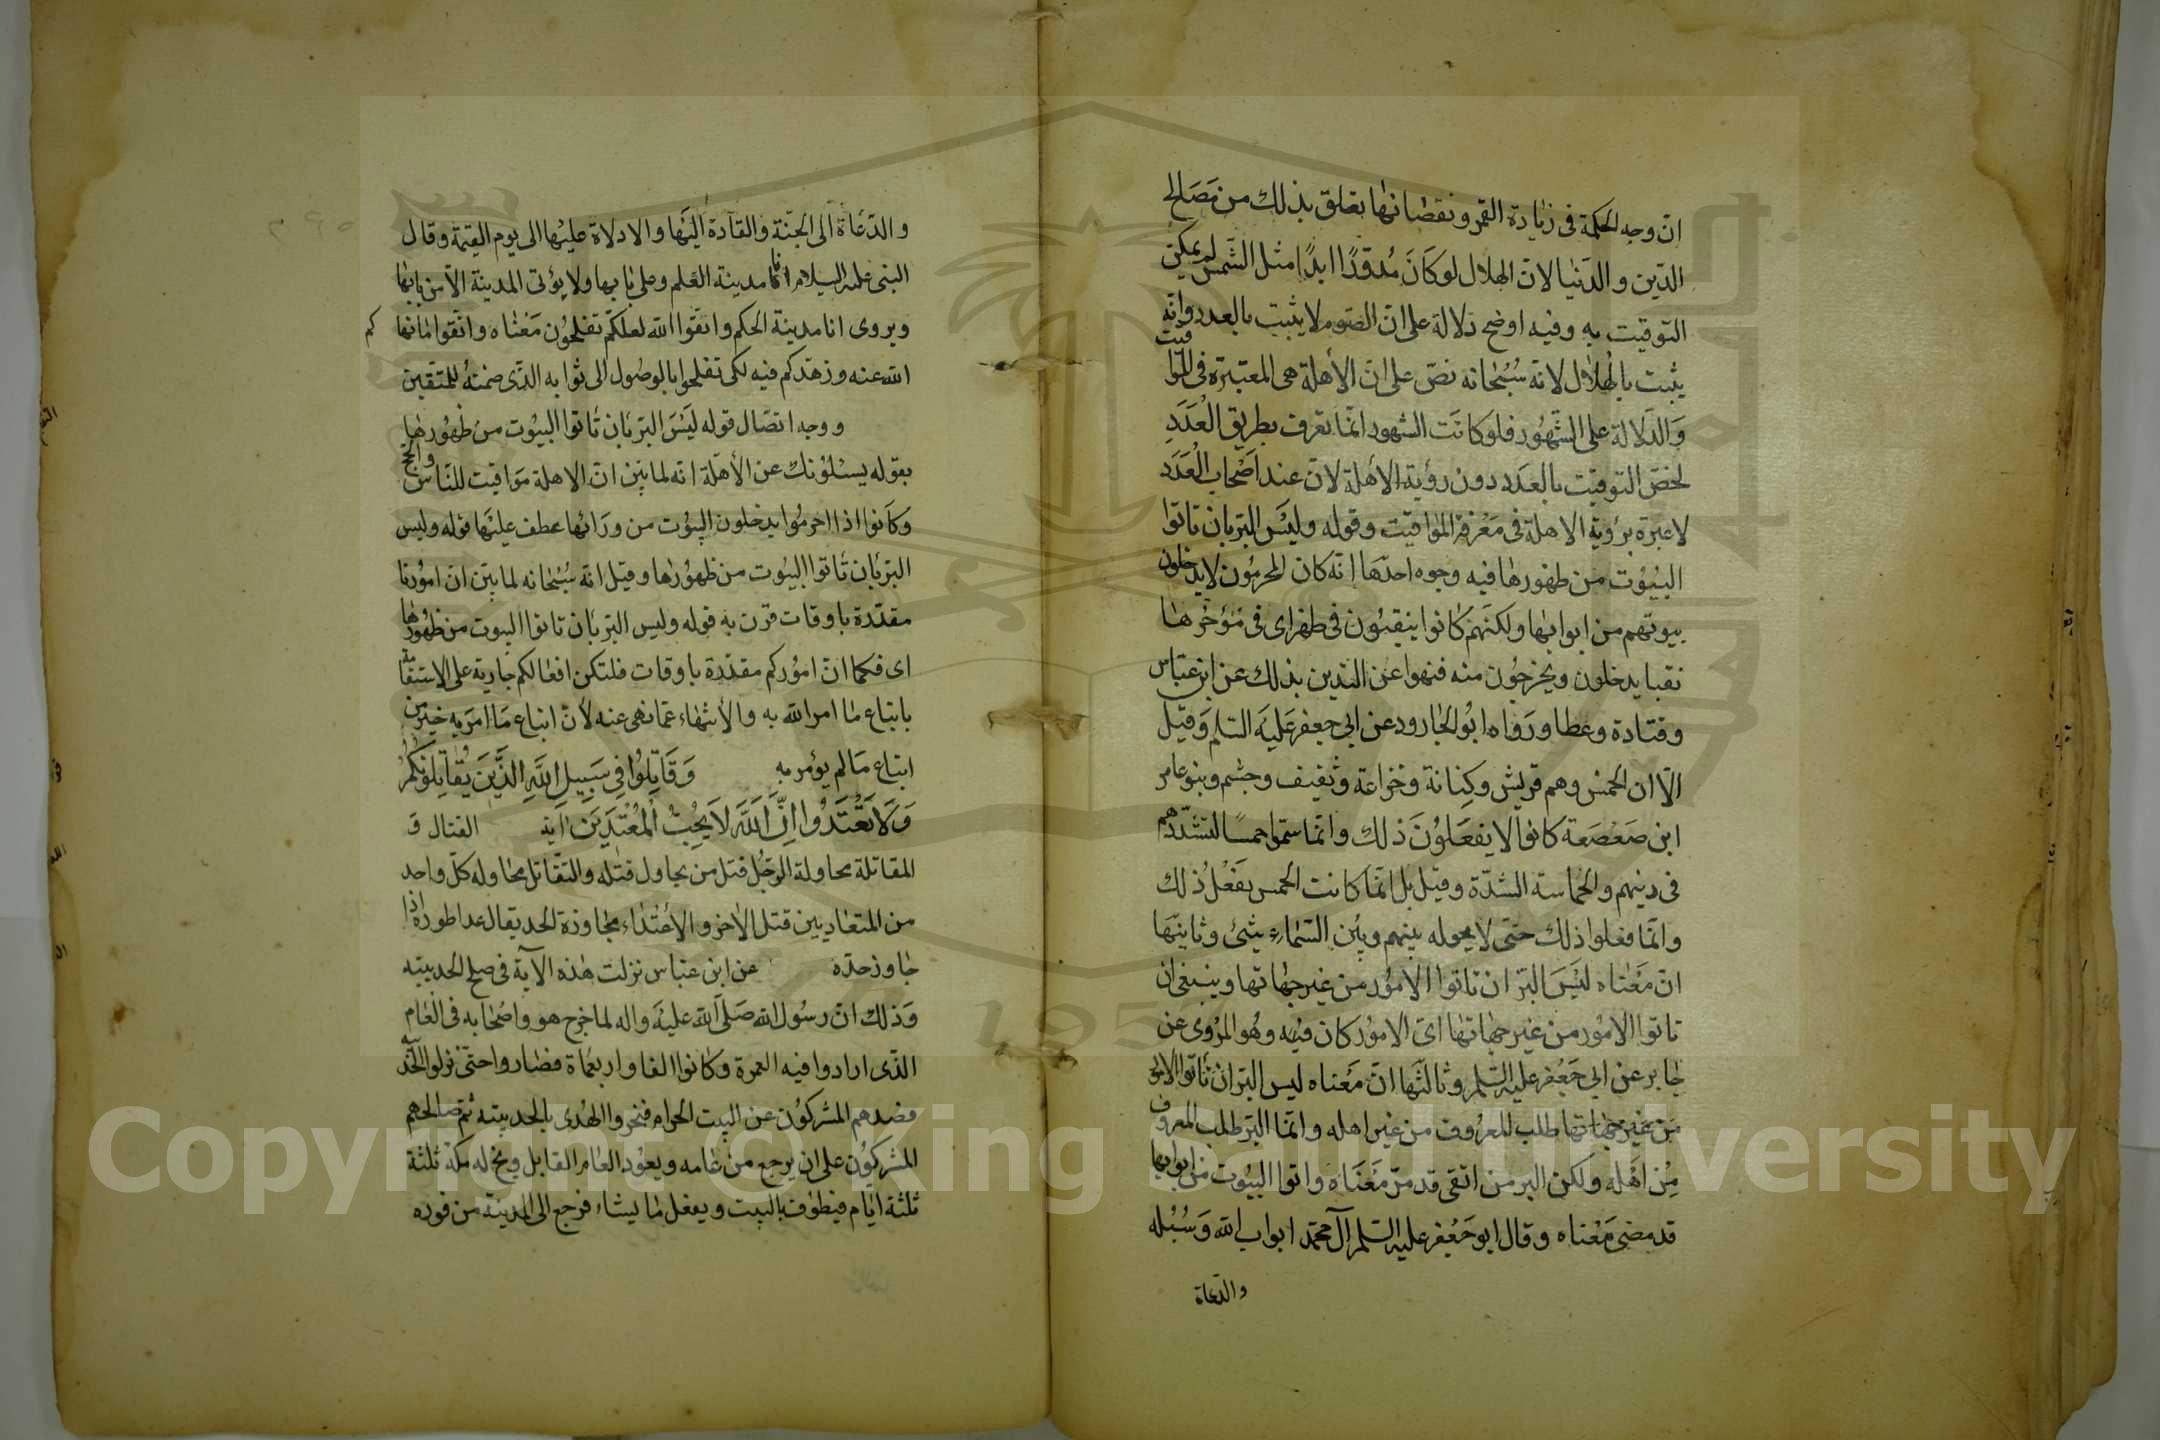 ان وجه الحكمة فى زيادة القمر و نقصانها تعلق بذلك من مصالح
الدين و الدنيا لان الهلال لو كان مدورا ابدا مثل الشمس لم يمكن
التوقيت به وفيه اوضح دلالة على ان الصوم لا يثبت بالعدد وانه
يثبت بالهلال لانه سبحانه نص على ان الأهلة هى المعتبرة فى المواقيت
والدلالة على الشهور فلو كانت الشهور انما تعرف بطريق العدد
لخص التوقيت بالعدد دون رؤية الأهلة لان عند اصحاب العدد
لا عبرة برؤية الاهلة فى معرفة المواقيت وقوله وليس البر بان تاتوا
البيوت من ظهورها فيه وجوه احدها انه كان المحرمون لا يدخلون
بيوتهم من ابوابها ولكنهم كانوا ينقبون فى ظهر اى فى مؤخرها
نقبا يدخلون ويخرجون منه فنهوا عن التدين بذلك عن ابن عباس
وقتادة وعطا ورواه ابو الجارود عن ابى جعفر عليه السلم وقيل
الا ان الحمس وهم قريش وكنانة وخزاعة وثقيف وجشم وبنو عامر
ابن صعصعة كانوا لا يفعلون ذلك وانما سموا حمسا لتشددهم
فى دينهم والحماسة الشدة وقيل بل انما كانت الحمس يفعل ذلك
وانما فعلوا ذلك حتى لا يحوله بينهم وبين السماء شئ وثانيها
ان معناه ليس البر ان تاتوا الامور من غير جهاتها وينبغى ان
تاتوا الامور من غير جهاتها اى الامور كان فيه وهو المروى عن
جابر عن ابى جعفر عليه السلم وثالثها ان معناه ليس البر ان تاتوا الامور
من غير جهاتها طلب للمعروف من غير اهله وانما البر طلب المعروف
من اهله ولكن البر من اتقى قد مر معناه واتوا البيوت من ابوابها
قد مضى معناه وقال ابو جعفر عليه السلم آل محمد ابواب الله وسبله
والدعاة
والدعاة الى الجنة والقادة اليها والادلاة عليها الى يوم القيمة وقال
النبى عليه السلام انا مدينة العلم وعلى بابها ولا يؤتى المدينة الا من بابها
ويروى انا مدينة الحكم واتقوا الله لعلكم تفلحون معناه واتقوا ما نهاكم
الله عنه وزهدكم فيه لكى تفلحوا بالوصول الى ثوابه الذى ضمنه للمتقين
ووجه اتصال قوله ليس البر بان تاتوا البيوت من ظهورها
بقوله يسئلونك عن الأهلة انه لما بين ان الاهلة مواقيت للناس والحج
وكانوا اذا احرموا يدخلون البيوت من ورائها عطف عليها قوله وليس
البر بان تاتوا البيوت من ظهورها وقيل انه سبحانه لما بين ان امورنا
مقدرة باوقات قرن به قوله وليس البر بان تاتوا البيوت من ظهورها
اى فكما ان اموركم مقدرة باوقات فلتكن افعالكم جارية على الاستقامة
باتباع ما امر الله به والانتهاء عما نهى عنه لان اتباع ما امر به خير من
اتباع ما لم يؤمر به وَقَاتِلُوا فِي سَبِيلِ اللهِ الَّذِينَ يُقَاتِلُونَكُمْ
وَلَا تَعْتَدُوا اِنَّ اللهَ لَا يُحِبُّ الْمُعْتَدِينَ اية القتال و
المقاتلة محاولة الرجل قتل من يحاول قتله والتقاتل محاوله كل واحد
من المتعاديين قتل الاخر والاعتداء مجاوزة الحد يقال عدا طوره اذا
جاوز حده عن ابن عباس نزلت هذه الآية فى صلح الحديبيه
وذلك ان رسول الله صلى الله عليه واله لما خرج هو واصحابه فى العام
الذى ارادوا فيه العمرة وكانوا الفا واربعماة فصاروا حتى نزلوا الحديبية
فصدهم المشركون عن البيت الحرام فنحروا الهدى بالحديبيه ثم صالحهم
المشركون على ان يرجع من عامه ويعود العام القابل ويخلى له مكة ثلثة
ثلثة ايام فيطوف بالبيت ويفعل ما يشاء فرجع الى المدينة من فوره
Copyright © King Saud University
1957